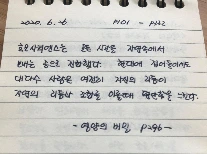 2020. 6. 6 P101 - P142
호모사피엔스는 모든 시간을 자연속에서
보내는 종으로 진화했다. 현대에 접어들어서도
대다수 사람은 여전히 자신의 리듬이
자연의 리듬과 조화를 이룰때 편안함을 느낀다.
- 영양의 비밀 P296 -